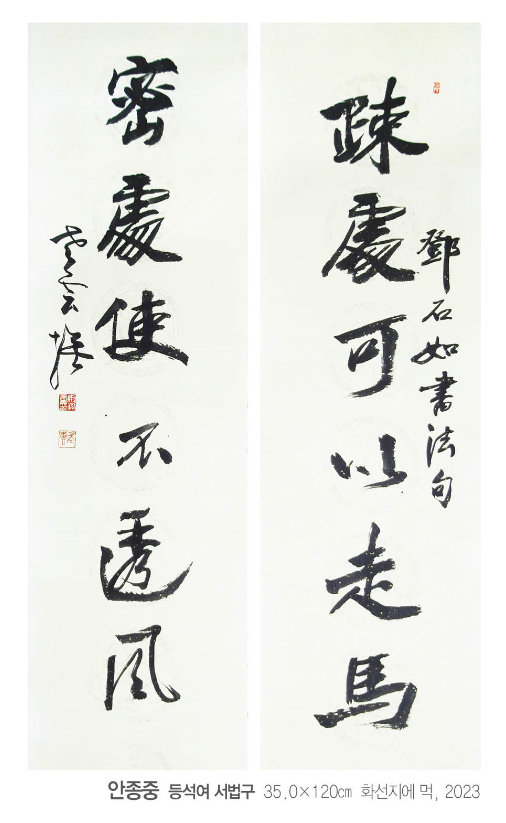 鄧石如書法句
疎處可以走馬
密處使不透風
안종중 등석여 서법구 35.0×120㎝ 화선지에 먹, 2023